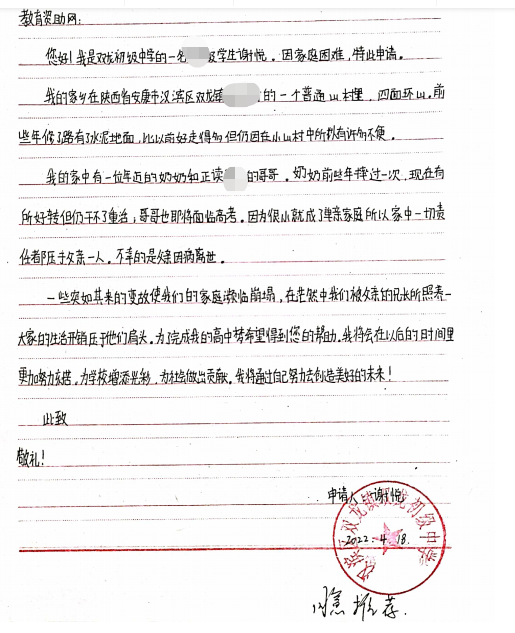 教育资助网:
您好!我是双龙初级中学的一名 级学生谢悦。因家庭困难,特此申请。
我的家乡在陕西省安康市汉滨区双龙镇 的一个普通山村里,四面环山。前
些年修了路有了水泥地面,比以前好走得多但仍因在小山村中所以有许多不便。
我的家中有一位年迈的奶奶和正读 的哥哥。奶奶前些年摔过一次,现在有
所好转但仍干不了重活;哥哥也即将面临高考。因为很小就成了单亲家庭所以家中一切责
任都压于父亲一人。不幸的是父亲因病离世。
一些突如其来的变故使我们的家庭濒临崩塌,在茫然中我们被父亲的兄长所照养一
大家的生活开销压于他们肩头。为了完成我的高中梦希望得到您的帮助。我将会在以后的时间里
更加努力 ,为学校增添光彩,为社会做出贡献。我将通过自己努力去创造美好的未来!
此致
敬礼!
申请人 谢悦
2022.4.18.
汉滨区双龙镇双龙初级中学
同意推荐.